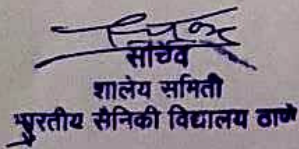 सचिव
शालेय समिती
भारतीय सैनिकी विद्यालय ठाणे